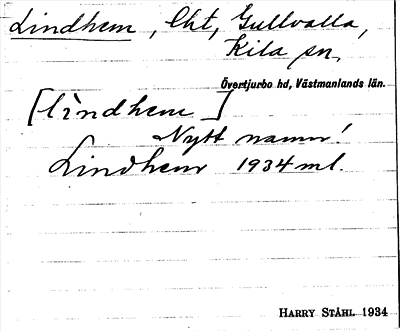 Lindhem, Lht, Gullvalla,
Kila sn.
Övertjurbo hd, Västmanlands län.
[lìndhem]
Nytt namn!
Lindhem 1934 ml.
HARRY STÅHL 1934